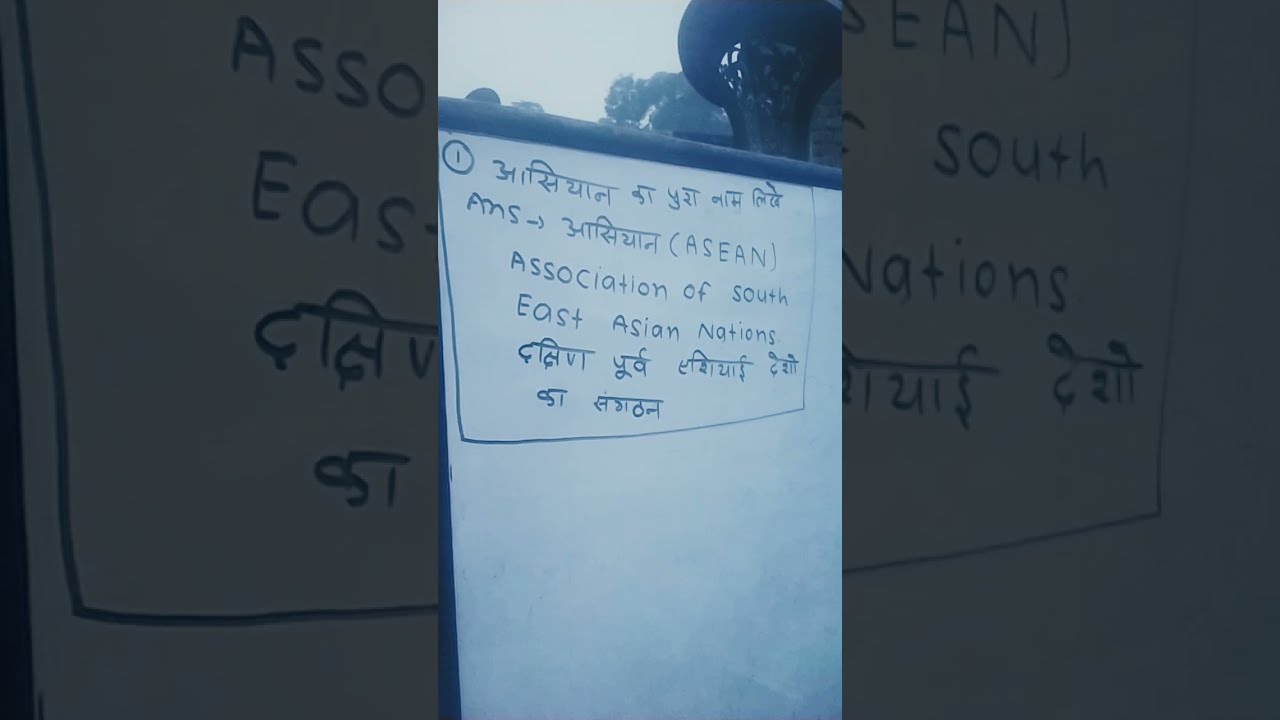 ① आसियान का पुरा नाम लिखे
Ans → आसियान (ASEAN)
Association of south
East Asian Nations
दक्षिण पूर्व एशियाई देशो
का संगठन